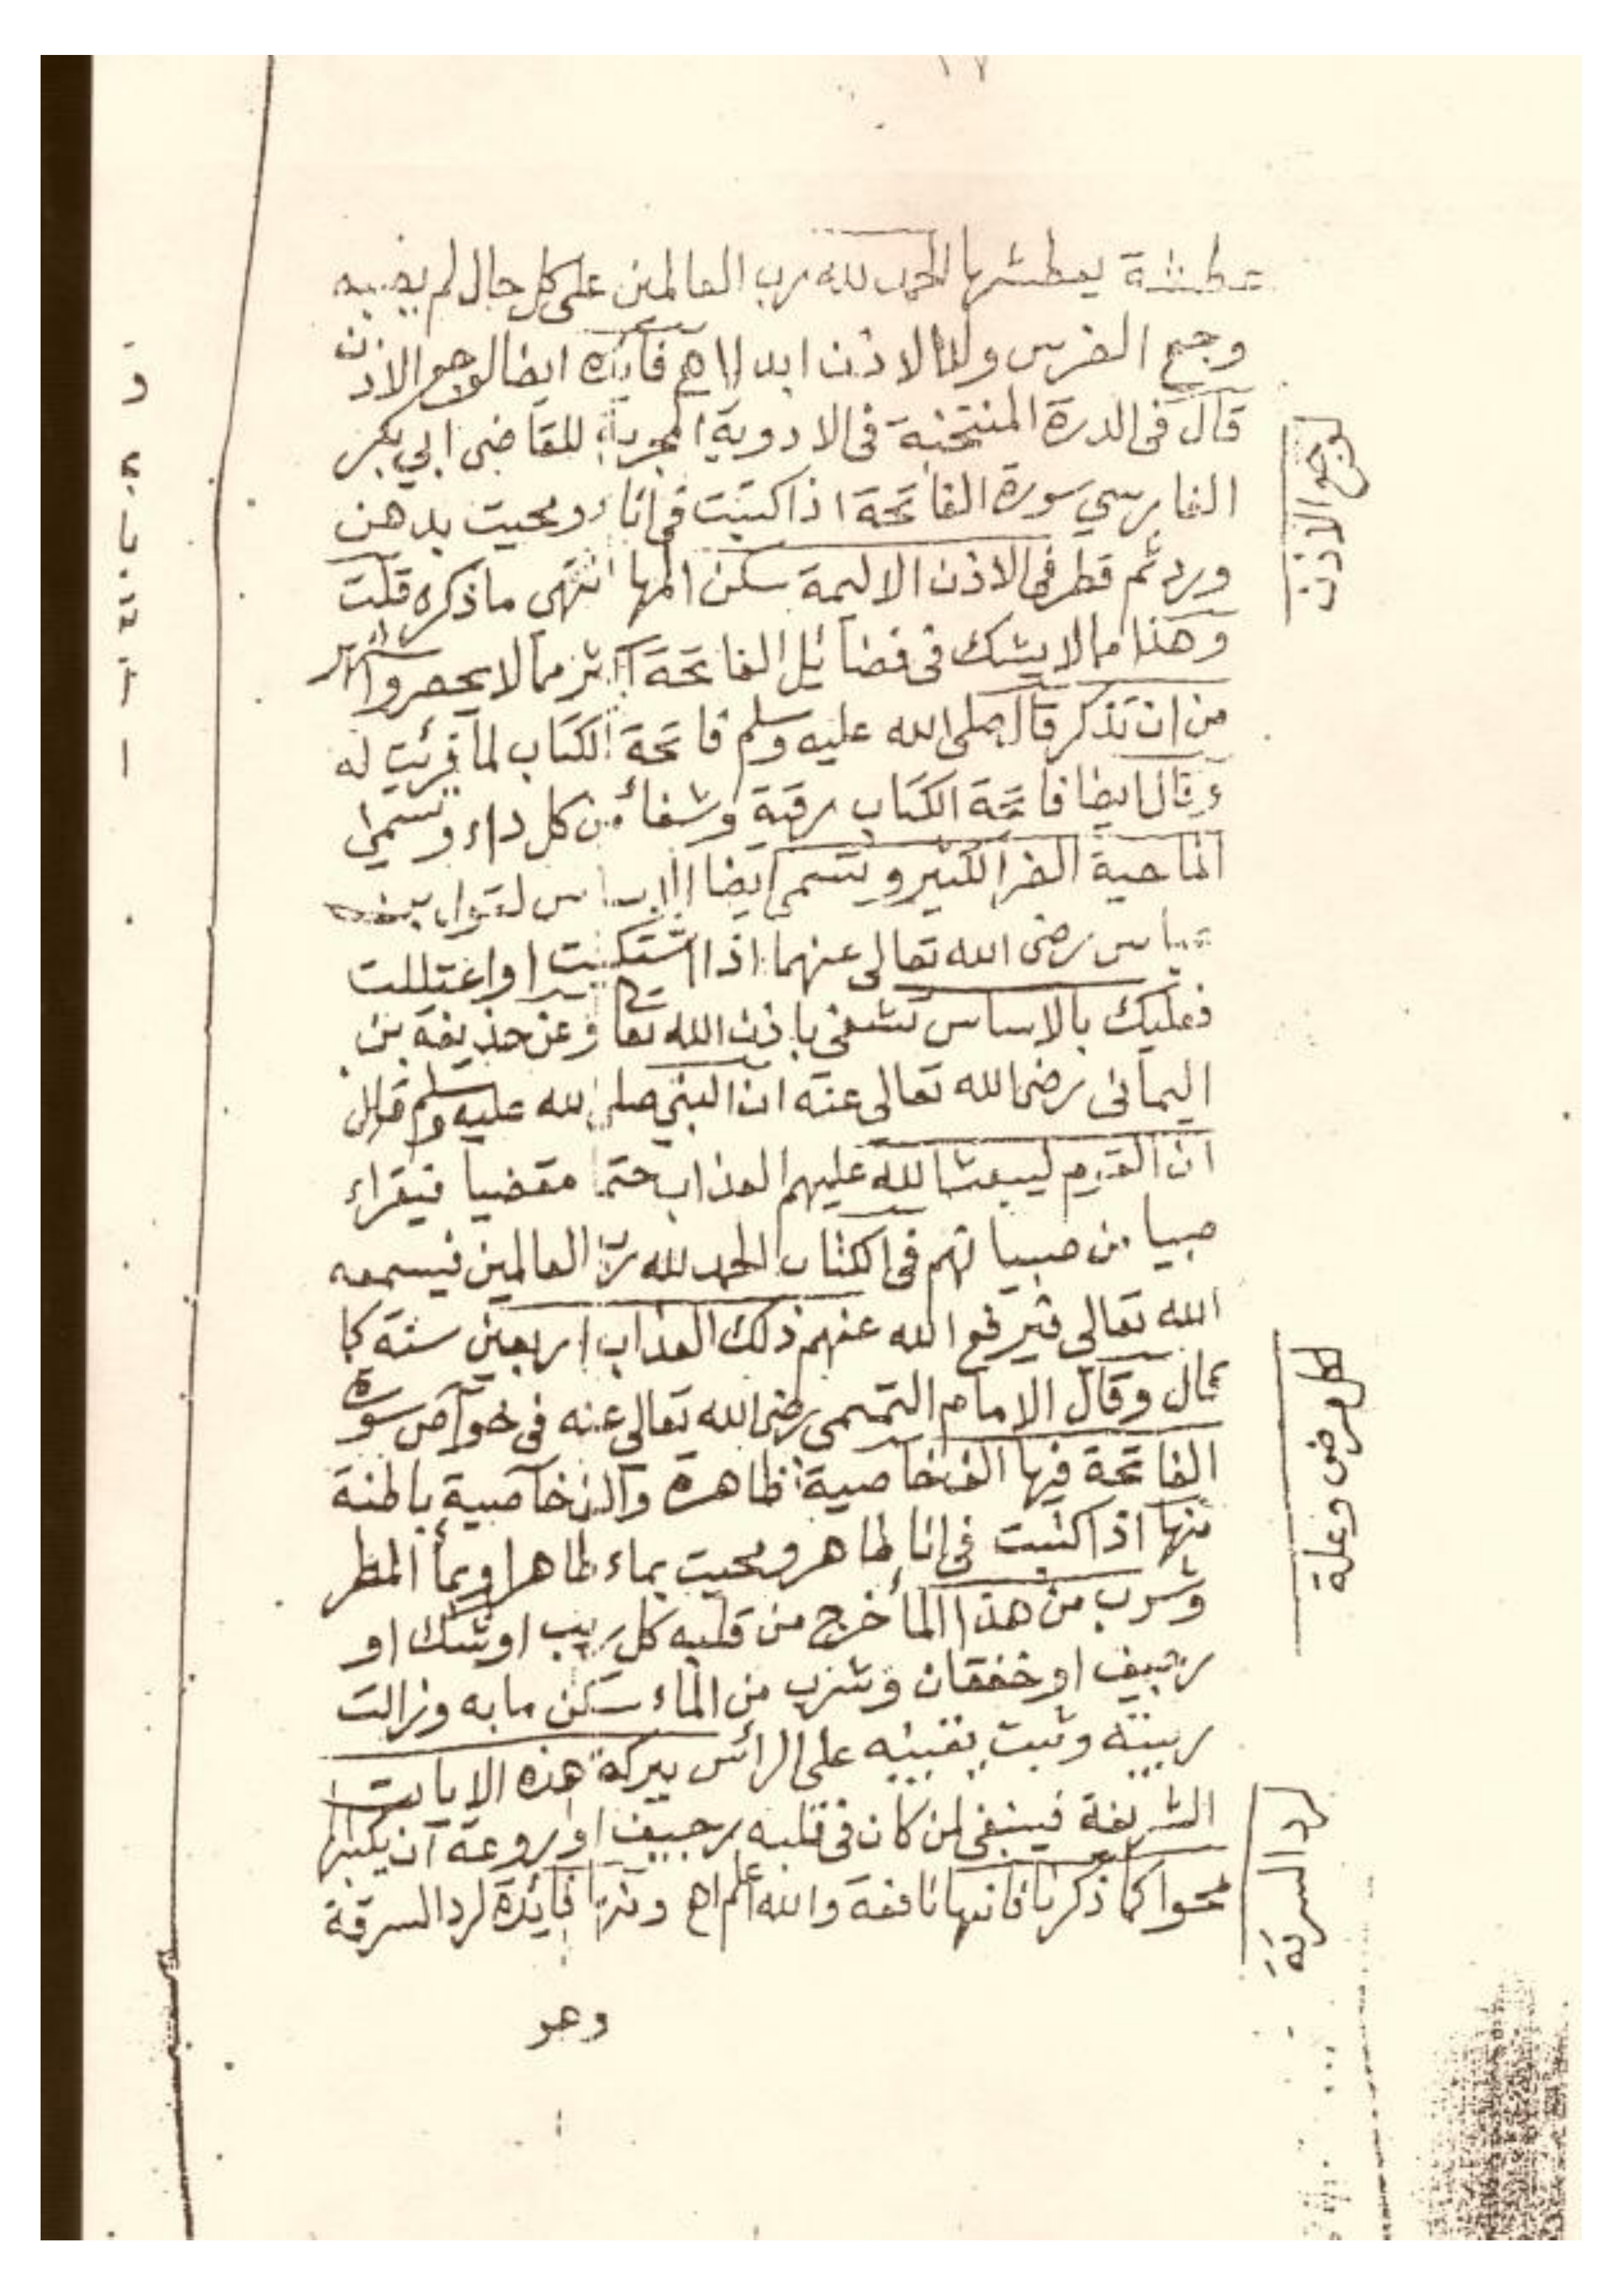 ١٧
عطشة يعطشها الحمد لله رب العالمين على كل حال لم يضبه
وجع الضرس ولا الاذن ابدا اه فائدة ايضا لوجع الاذن
قال فى الدرة المنتخبة فى الادوية المجربة للقاضى ابي بكر
الفارسي سورة الفاتحة اذا كتبت فى اناء ومحيت بدهن
ورد ثم قطر فى الاذن الاليمة سكن المها انتهى ما ذكره قلت
وهذا مما لا يشك فى فضائل الفاتحة اكثر مما لا يحصر و
من ان تذكر قال صلى الله عليه وسلم فاتحة الكتاب لما قرئت له
وقال ايضا فاتحة الكتاب رقية وشفأ من كل داء وتسمى
الماحية الضر الكثير وتسمى ايضا لقول
عباس رضى الله تعالى عنهما اذا اشتكيت او اعتللت
فعليك بالاساس تشفى باذن الله تعا وعن حذيفة بن
اليمانى رضى الله تعالى عنه ان النبي صلى الله عليه وسلم قال
ان القوم ليبعث الله عليهم العذاب حتما مقضيا فيقراء
صبيا من صبيانهم فى الكتاب الحمد لله رب العالمين فيسمعه
الله تعالى فيرفع الله عنهم ذلك العذاب اربعين سنة كما
قال وقال الامام التميمى رضى الله تعالى عنه فى خواص سورة
الفاتحة فيها الف خاصية ظاهرة والف خاصية باطنة
منها اذا كتبت فى انا طاهر ومحيت بماء طاهر او بمأ المطر
وشرب من هذا المأ خرج من قلبه كل ريب او شك او
رجيف او خفقان وشرب من الماء سكن ما به وزالت
ريبته وثبت يقينه على الرأس ببركة هذه الايات
الشريفة فينبغى لمن كان فى قلبه رجيف او روعة ان يكتبها
محوا كما ذكرنا فانها نافعة والله اعلم اه فائدة لرد السرقة
وهو
لوجع الاذن
لكل مرض وعلة
لرد السرقة